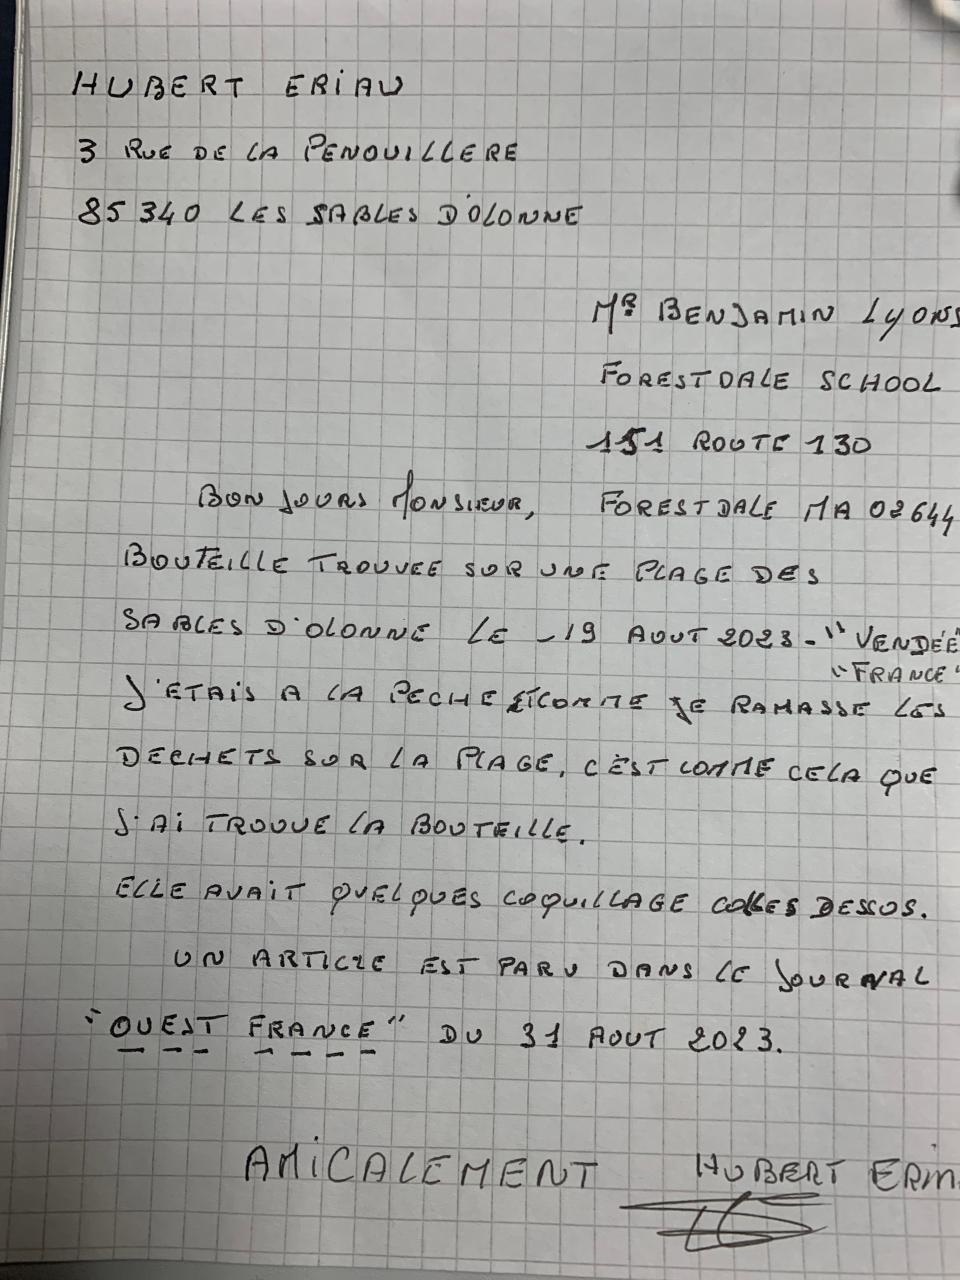 HUBERT ERiAU
3 RUE DE LA PENOUILLERE
85 340 LES SABLES D'OLONNE
MR BENJAMIN LYONS
FORESTDALE SCHOOL
151 ROUTE 130
BONJOURS MONSIEUR, FORESTDALE MA 02644
BOUTEILLE TROUVEE SUR UNE PLAGE DES
SABLES D'OLONNE LE -19 AOUT 2023-"VENDÉE"
"FRANCE"
J'ETAIS A LA PECHE ET COMME JE RAMASSE LES
DECHETS SUR LA PLAGE, C'EST COMME CELA QUE
J'Ai TROUVE LA BOUTEILLE.
ELLE AVAiT QUELQUES COQUILLAGE COLLES DESSOS.
UN ARTICLE EST PARU DANS LE JOURNAL
"OUEST FRANCE" DU 31 AOUT 2023.
AMiCALEMENT HUBERT